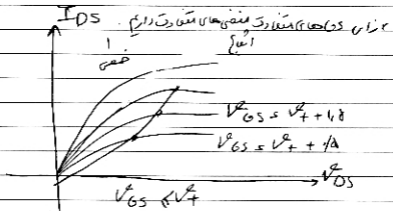 I DS
برای GS های متفاوت منحنی های متفاوت داریم.
خطی
اشباع
V GS = V t + 1,5
V GS = V t + ,5
V DS
V GS ⩽ V t